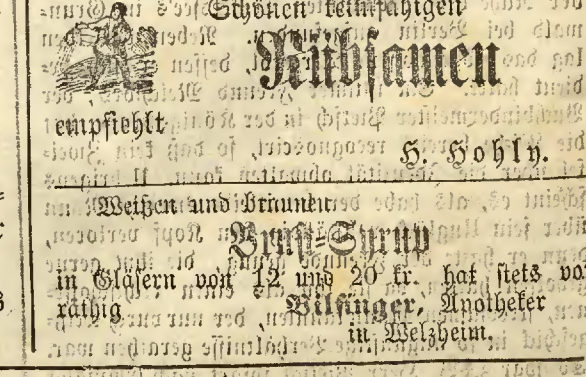 Schönen keimfähigen
Rübsamen
empfiehlt
H. Hohly.
Weißen und braunen
Brust-Syrup
in Gläsern von 12 und 20 kr. hat stets vor
räthig Bilfinger, Apotheker
in Welzheim.